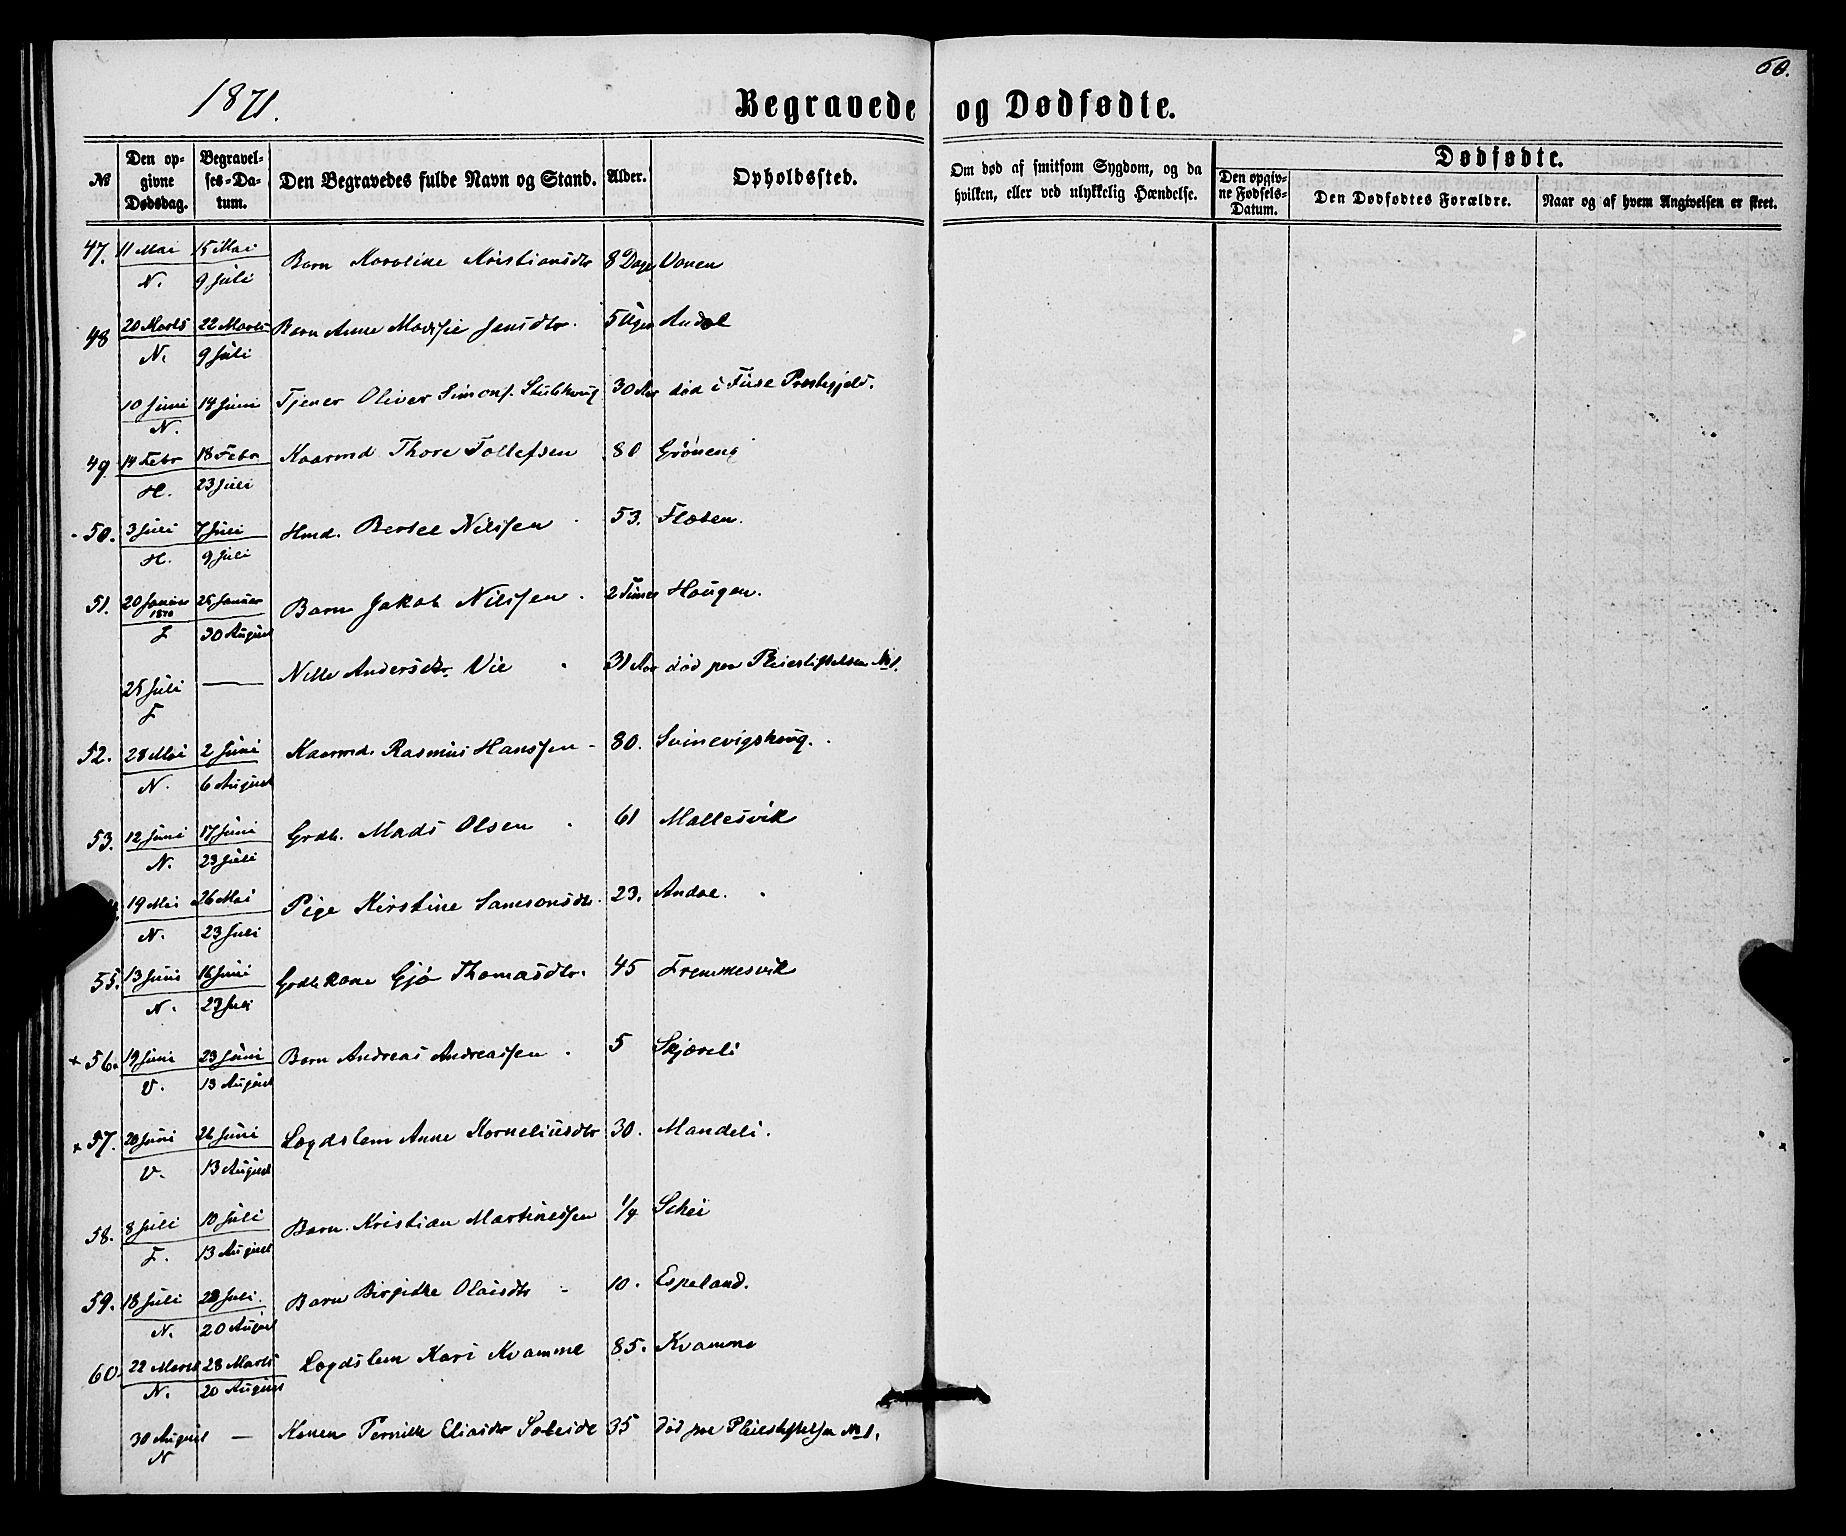 1871.
Begravede og Dødfødte.
60.
№
Den opgivne Dødsdag.
Begravelses-Datum.
Den Begravedes fulde Navn og Stand.
Alder.
Opholdssted.
Om død af smitsom Sygdom, og da hvilken, eller ved ulykkelig Hændelse.
Dødfødte.
Den opgivne Fødsels-Datum.
Den Dødfødtes Forældre.
Naar og af hvem Angivelsen er skeet.
47. 11 Mai 15 Mai Barn Karoline Kristiansdtr 8 Dage Vonen
N. 9 Juli
48 20 Marts 22 Marts Barn Anne Jansdtr. 5 Uger Andal
N. 9 Juli
10 Juni 14 Juni Tjener Oliver Simons. 30 Aar død i Fuse Præstegjeld.
N.
49. 14 Febr 18 Febr Kaarmd Thore Tollefsen 80 Grøneng
H. 23 Juli
50. 3 Juli 7 Juli Hmd. Bertel Nilssen 53. Flaten.
H. 9 Juli
51. 20 Januar 1870 25 Januar Barn Jakob Nilssen 2 Timer Haugen.
F 30 August
25 Juli — Nille Andersdtr. Vie 31 Aar død paa Pleiestiftelsen № 1.
F
52. 28 Mai 2 Juni Kaarmd. Rasmus Hanssen 80. Svinevigshaug.
N. 6 August
53. 12 Juni 17 Juni Grdb. Mads Olsen 61 Mallesvik
N. 23 Juli
19 Mai 26 Mai Pige Kirstine Samsonsdtr. 23. Andal.
N. 23 Juli
55. 13 Juni 16 Juni Grdbkone Gjø Thomasdtr. 45 Fremmesvik
N. 23 Juli
+ 56. 19 Juni 23 Juni Barn Andreas Andreassen 5 Skjæreli
V. 13 August
+ 57. 20 Juni 26 Juni Lægdslem Anne Korneliusdtr 30. Mandeli.
V. 13 August
58. 8 Juli 10 Juli Barn Kristian Martinussen 1/4 Schei
F. 13 August
59. 18 Juli 22 Juli Barn Birgitte Olaisdtr 10. Espeland.
N. 20 August
60. 22 Marts 28 Marts Lægdslem Kari Kvamme 85. Kvamme
N. 20 August
30 August — Konen Pernille Eliasdtr Sæteide 35 død paa Pleiestiftelsen № 1.
N